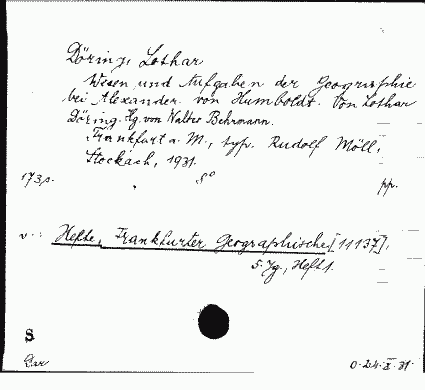 Döring, Lothar
Wesen und Aufgaben der Geographie
bei Alexander von Humboldt. Von Lothar
Döring. Hg. von Walter Behrmann.
Frankfurt a. M., typ. Rudolf Möll,
Stockach, 1931.
173 p. 8° pp.
v. Hefte, Frankfurter Geographische [11137],
5. Jg., Heft 1.
S
0.24.X.31